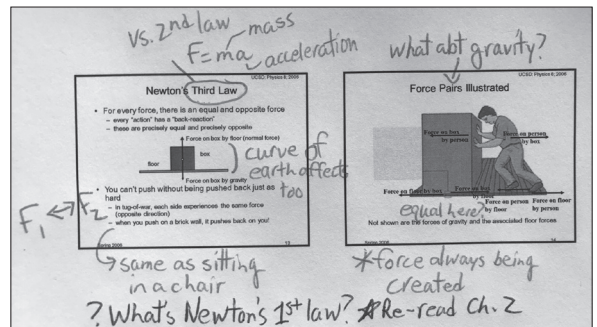 vs. 2nd law
mass
F=ma
acceleration
UCSD; Physics 8; 2006
Newton's Third Law
• For every force, there is an equal and opposite force
– every "action" has a "back-reaction"
– these are precisely equal and precisely opposite
Force on box by floor (normal force)
box
floor
Force on box by gravity
curve of
earth affects
too
• You can't push without being pushed back just as
hard
– in tug-of-war, each side experiences the same force
(opposite direction)
– when you push on a brick wall, it pushes back on you!
F1 ↔ F2
Spring 2006
13
same as sitting
in a chair
what abt gravity?
UCSD; Physics 8; 2006
Force Pairs Illustrated
Force on box
by person
Force on person
by box
Force on floor by box
Force on box
by floor
Force on person
by floor
Force on floor
by person
equal here?
Not shown are the forces of gravity and the associated floor forces
Spring 2006
14
*force always being
created
? What's Newton's 1st law? *Re-read Ch. 2